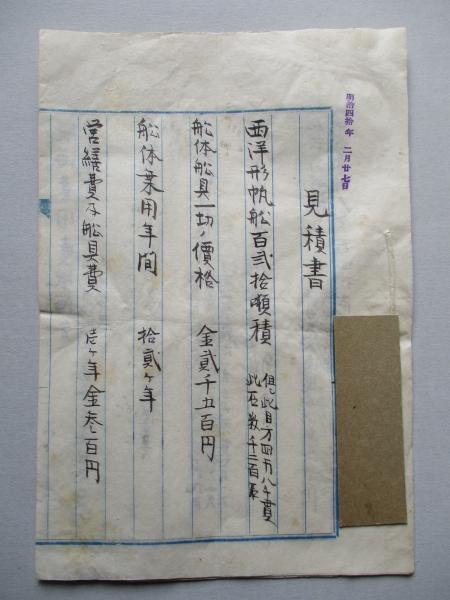 明治四拾年 二月廿七日
見積書
西洋形帆船百弐拾噸積
但此目方四万八千貫
此石数千二百石
船体船具一切ノ價格 金貳千五百円
船体乗用年間 拾貳ヶ年
営繕費及船具費 壱ヶ年金叁百円